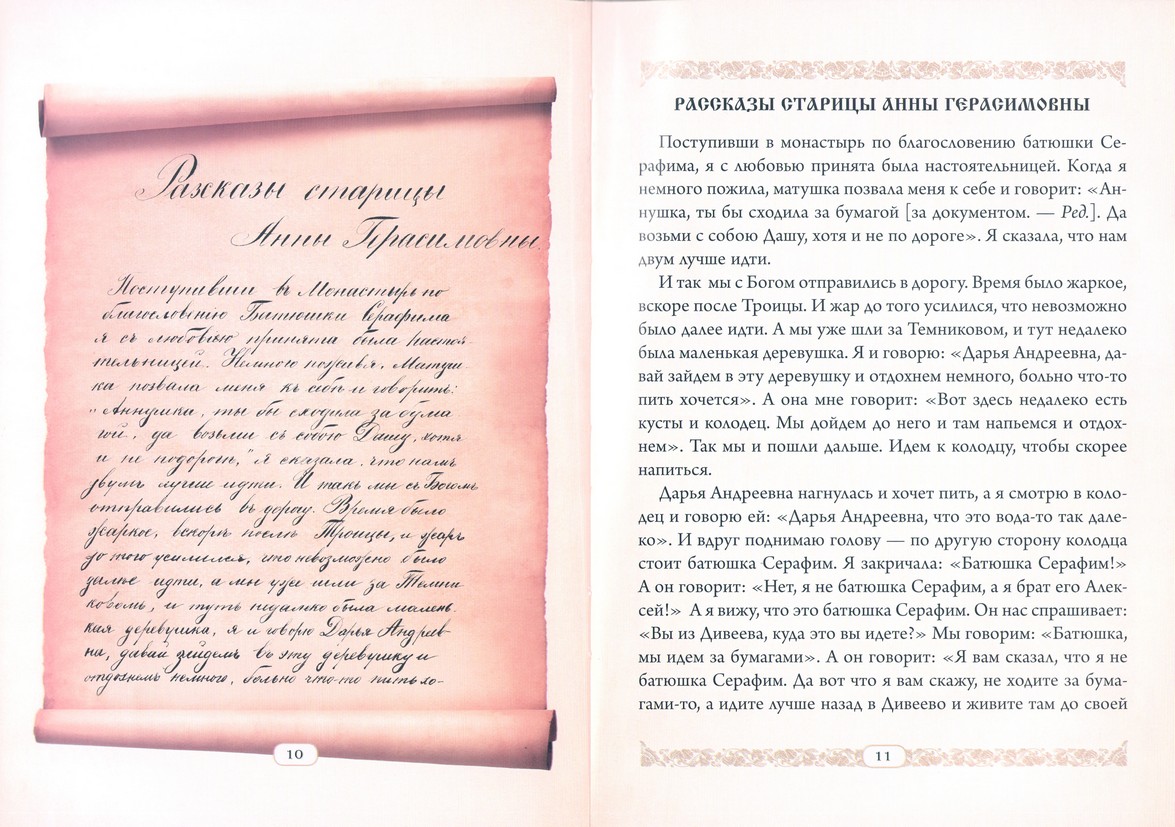 Разсказы старицы
Анны Герасимовны.
Поступивши въ Монастырь по
благословенію Батюшки Серафима
я съ любовію принята была настоя-
тельницей. Немного поживя, Матуш-
ка позвала меня къ себѣ и говоритъ:
"Аннушка, ты бы сходила за бума
гой, да возьми съ собою Дашу, хотя
и не подорогѣ," я сказала, что намъ
двумъ лучше идти. И такъ мы съ Богомъ
отправились въ дорогу. Время было
жаркое, вскорѣ послѣ Троицы, и жаръ
до того усилился, что невозможно было
далѣе идти, а мы уже шли за Темни
ковомъ, и тутъ недалеко была малень-
кая деревушка, я и говорю Дарья Андреев-
на, давай зайдемъ въ эту деревушку и
отдохнемъ немного, больно что-то пить хо-
10
РАССКАЗЫ СТАРИЦЫ АННЫ ГЕРАСИМОВНЫ
Поступивши в монастырь по благословению батюшки Се-
рафима, я с любовью принята была настоятельницей. Когда я
немного пожила, матушка позвала меня к себе и говорит: «Ан-
нушка, ты бы сходила за бумагой [за документом. — Ред.]. Да
возьми с собою Дашу, хотя и не по дороге». Я сказала, что нам
двум лучше идти.
И так мы с Богом отправились в дорогу. Время было жаркое,
вскоре после Троицы. И жар до того усилился, что невозможно
было далее идти. А мы уже шли за Темниковом, и тут недалеко
была маленькая деревушка. Я и говорю: «Дарья Андреевна, да-
вай зайдем в эту деревушку и отдохнем немного, больно что-то
пить хочется». А она мне говорит: «Вот здесь недалеко есть
кусты и колодец. Мы дойдем до него и там напьемся и отдох-
нем». Так мы и пошли дальше. Идем к колодцу, чтобы скорее
напиться.
Дарья Андреевна нагнулась и хочет пить, а я смотрю в коло-
дец и говорю ей: «Дарья Андреевна, что это вода-то так дале-
ко». И вдруг поднимаю голову — по другую сторону колодца
стоит батюшка Серафим. Я закричала: «Батюшка Серафим!»
А он говорит: «Нет, я не батюшка Серафим, а я брат его Алек-
сей!» А я вижу, что это батюшка Серафим. Он нас спрашивает:
«Вы из Дивеева, куда это вы идете?» Мы говорим: «Батюшка,
мы идем за бумагами». А он говорит: «Я вам сказал, что я не
батюшка Серафим. Да вот что я вам скажу, не ходите за бума-
гами-то, а идите лучше назад в Дивеево и живите там до своей
11